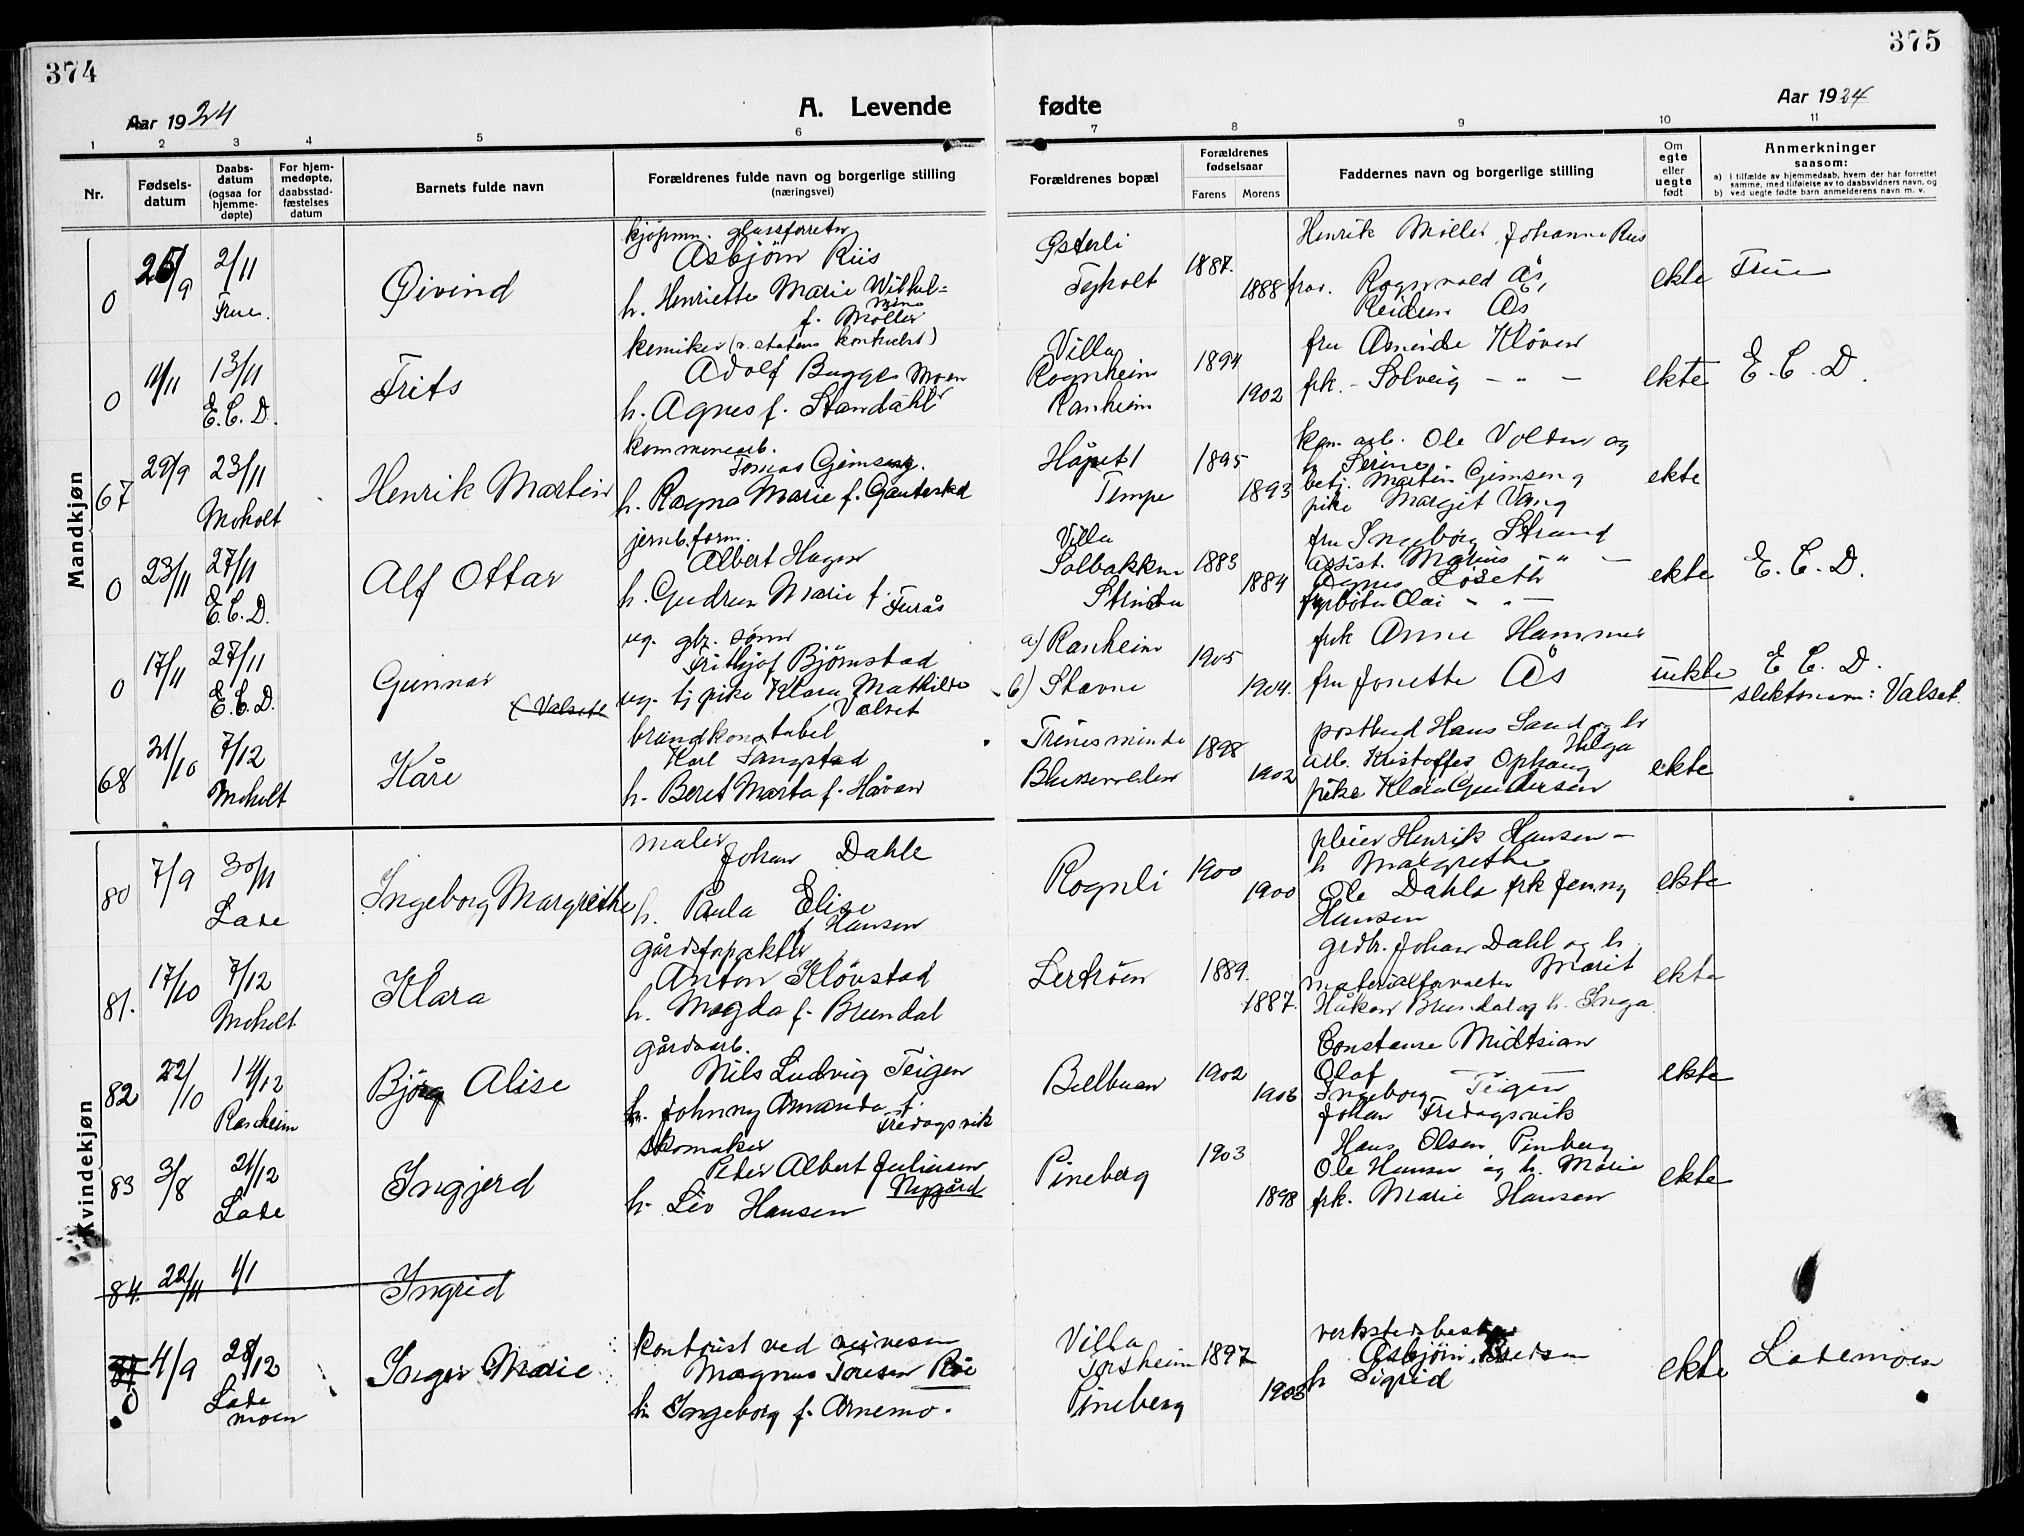 374
375
Aar 1924
A. Levende
fødte
Aar 1924
1 2 3 4 5 6 7 8 9 10 11
Nr.
Fødsels-
datum
Daabs-
datum
(ogsaa for
hjemme-
døpte)
For hjem-
medøpte,
daabsstad-
fæstelses
datum
Barnets fulde navn
Forældrenes fulde navn og borgerlige stilling
(næringsvei)
Forældrenes bopæl
Forældrenes
fødselsaar
Farens Morens
Faddernes navn og borgerlige stilling
Om
egte
eller
uegte
født
Anmerkninger
saasom:
a) i tilfælde av hjemmedaab, hvem der har forrettet
samme, med tilføielse av to daabsvidners navn, og
b) ved uegte fødte barn anmelderens navn m. v.
Mandkjøn
0 25/9 2/11
Øivind
kjøpmn. glassforretn
Asbjörn Riis
h. Henriette Marie Wilhel-
mine
f. Møller
Tyholt
1887.
1888
Henrik Møller, Johanne Riis
Rognvald Ås,
Reidun Ås
ekte
0 11/11 13/11
E. C. D.
Frits
kemiker (v. statens kontrolst)
Adolf Bugge Moen
h. Agnes f. Standahl
Villa
Rognheim
Ranheim
1894
1902
fru Aminde Kløven
frk. - Solveig - " -
ekte
E. C. D.
67 29/9 23/11
Moholt
Henrik Martin
kommunearb.
Tomas Gimseng.
h. Ragna Marie f. Gauterød
Håpet 1
Tempe
1895
1893
kom. arb. Ole Volden og
h Serine
betj. Martin Gimseng
pike Margit Vang
ekte
0 23/11 27/11
E. C. D.
Alf Ottar
jernb. form.
Albert Hagen
h. Gudrun Marie f. Furås
Villa
Solbakken
Strinda
1883
1884
fru Ingeborg Strand
assist. Marius - " -
Agnes Löseth
fyrböter Olai - " -
ekte
E. C. D.
0 17/11 27/11
E. C. D.
Gunnar
(Valset
ug. gbr. sønn
Frithjof Björnstad
ug. tj pike Klara Mathilde
Valset
a) Ranheim
b) Stavne
1905
1904.
frk Anne Hammer
fru Jonette Ås
uekte
E. C. D.
slektsnavn: Valset
68 21/10 7/12
Moholt
Kåre
brandkonstabel
Karl Tangstad
h. Beret Marta f. Håvan
Trinesminde
Blussuvolden
1898
1902
postbud Hans Sand og h
Helga
arb. Kristoffer Ophaug
pike Klara Gundersen
ekte
Kvindekjøn
80 7/9 30/11
Lade
Ingeborg Margrethe
maler
Johan Dahle
h. Paula Elise
f Hansen
Rognli
1900
1900
pleier Henrik Hansen -
h Margrethe
Ole Dahle frk Jenny
Hansen
ekte
81. 17/10 7/12
Moholt
Klara
Anton Klövstad
h. Magda f. Brundal
Lerkröen
1889.
1887.
grdbr. Johan Dahl og h.
Marit
materialforvalter
Håkon Brundal og h. Inga.
ekte
82 22/10 14/12
Ranheim
Björg Alise
gårdsarb.
Nils Ludvig Teigen
h. Johnny Amanda f.
Fredagsvik
Belbuan
1902
1906
Constanse Midtsian
Olaf
Ingeborg Teigen
Johan Fredagsvik
ekte
83 3/8 21/12
Lade
Ingjerd
skomaker
Peder Albert Juliusen
Nygård
h. Liv Hansen
Pineberg
1903
1898
Hans Olsen Pineberg
Ole Hansen og h. Marie
frk. Marie Hansen
ekte
84. 22/11 1/1
Ingrid
0 4/9 28/12
Lade
moen
Inger Marie
kontorist ved veivesen
Magnus Toresen Röe
h. Ingeborg f. Arnemo.
Villa
Torsheim
Pineberg
1897
1903
Asbjörn
h Sigrid
ekte
Lademoen